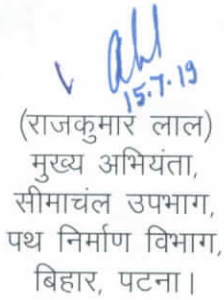 15.7.19
(राजकुमार लाल)
मुख्य अभियंता,
सीमाचंल उपभाग,
पथ निर्माण विभाग,
बिहार, पटना।